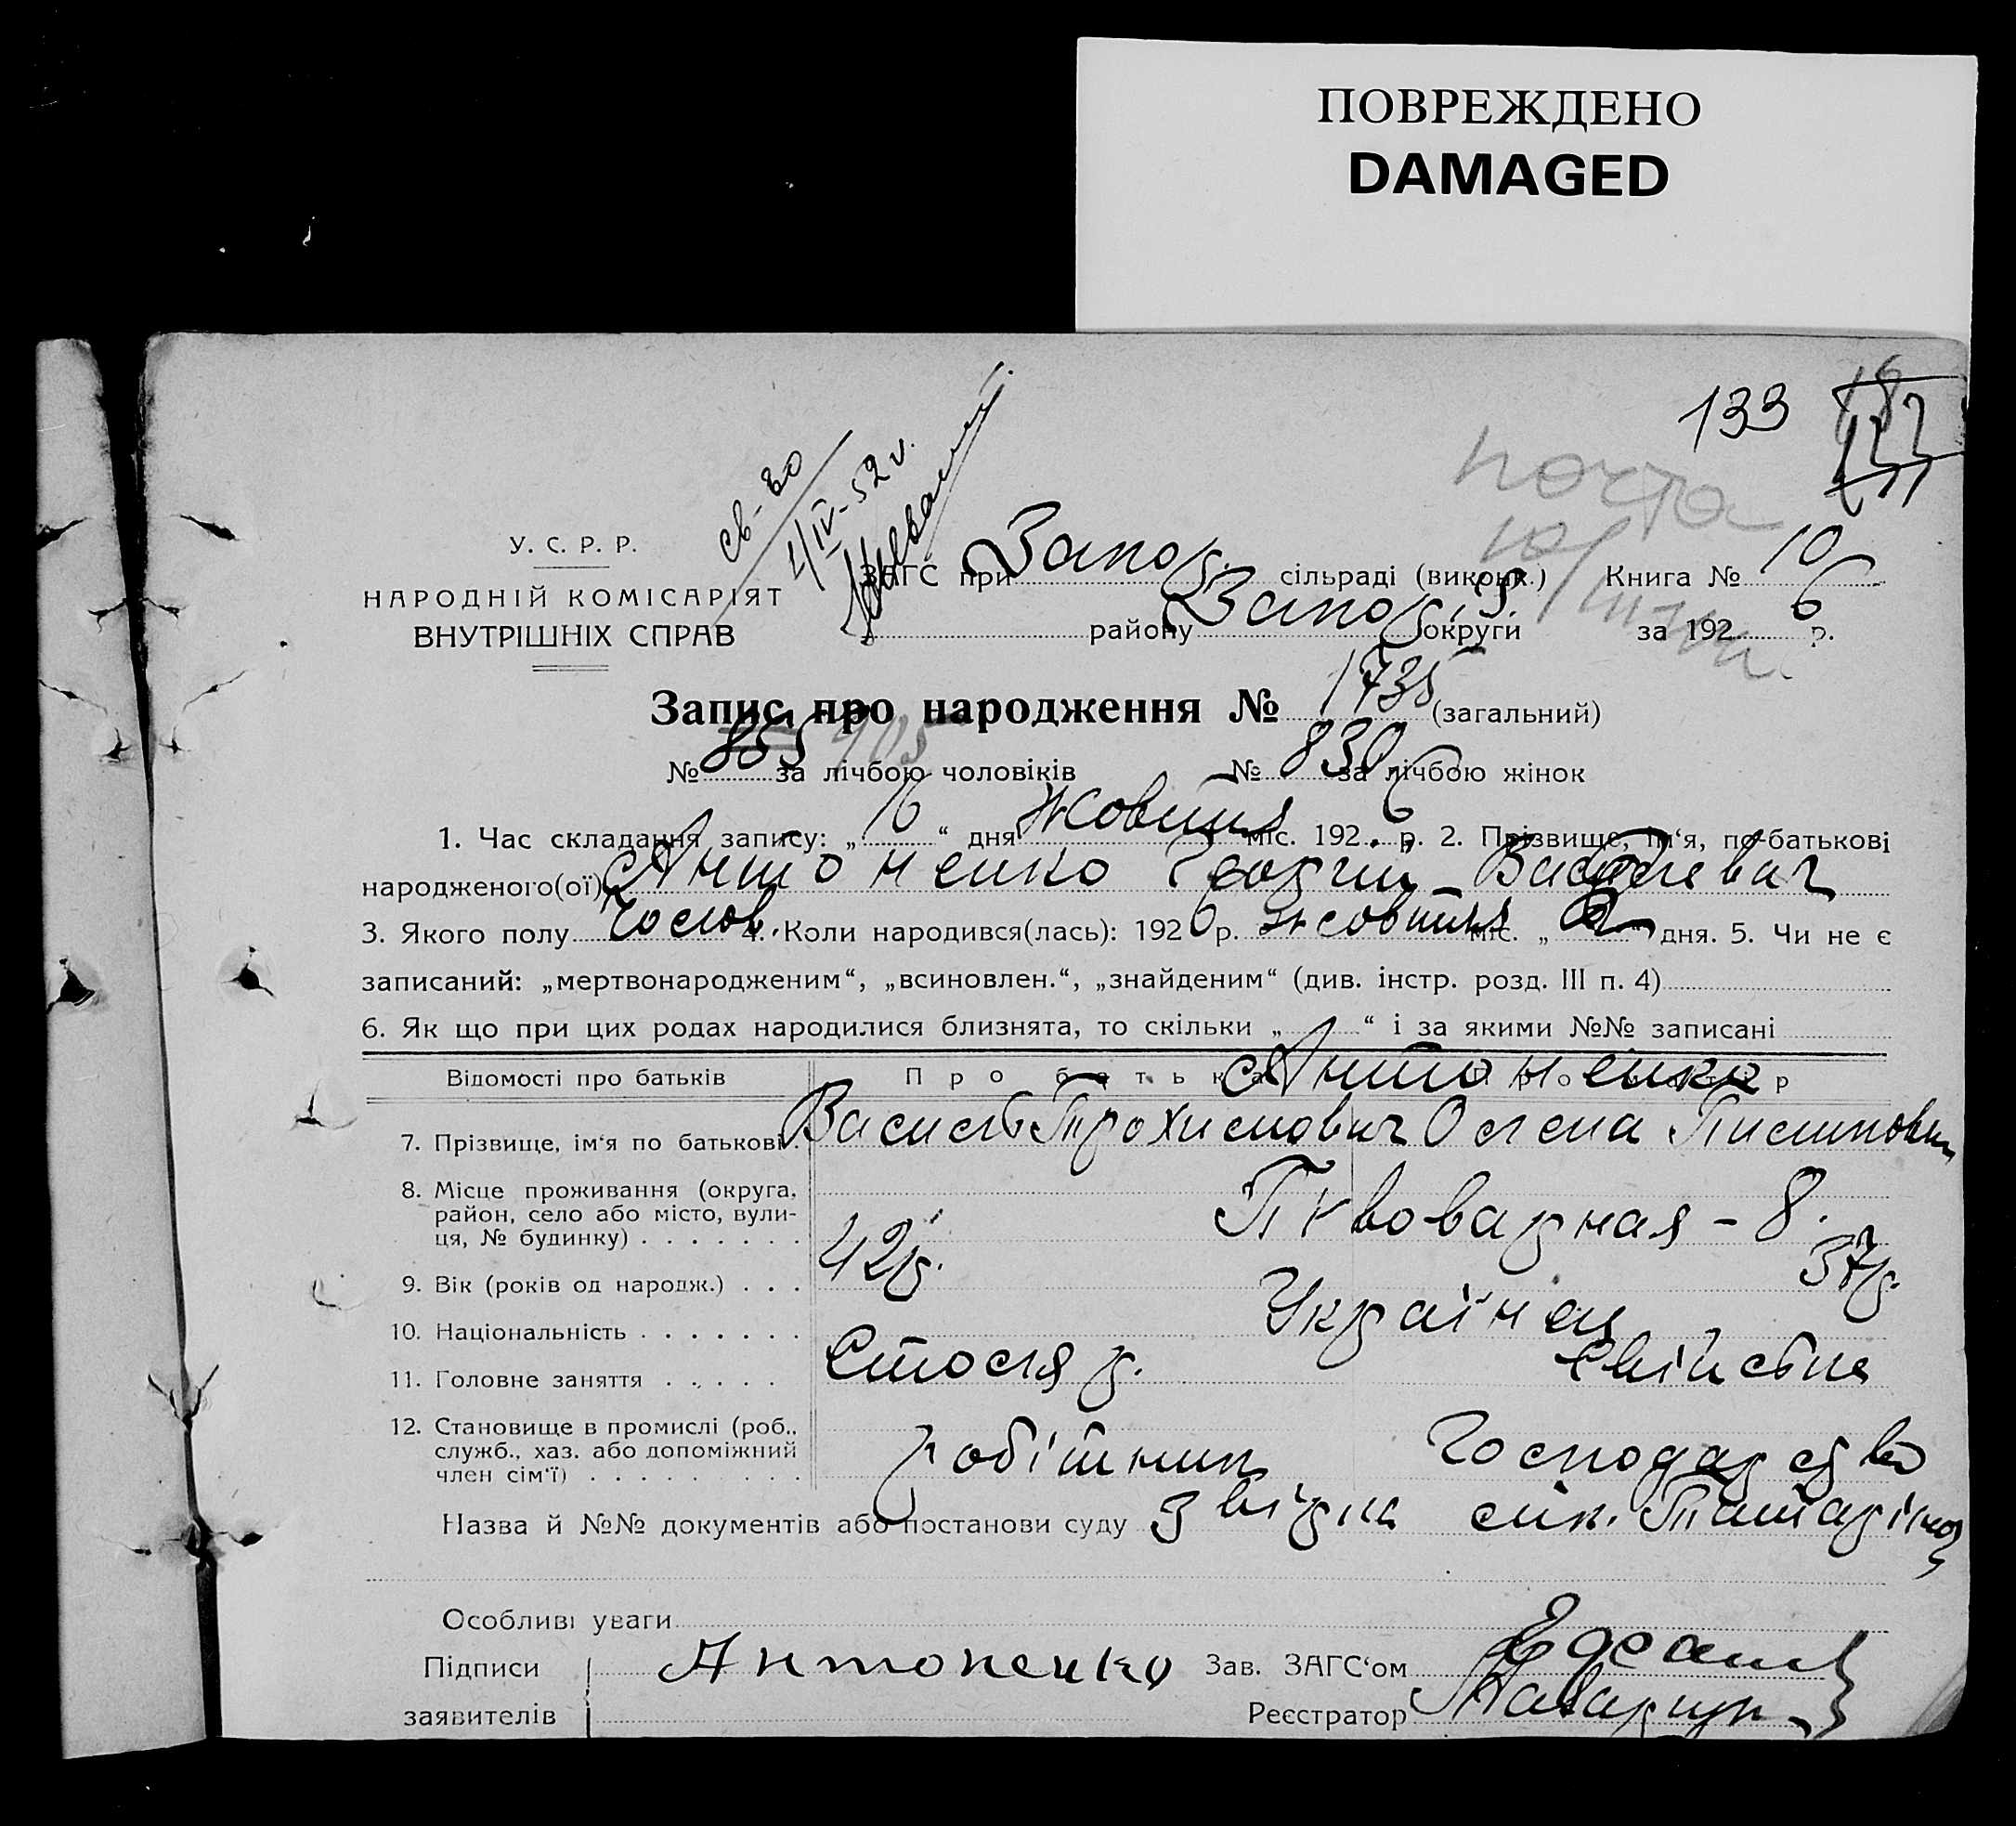 ПОВРЕЖДЕНО
DAMAGED
133
почта
св-во
4/IV-52 г.
У. С. Р. Р.
НАРОДНІЙ КОМІСАРІЯТ
ВНУТРІШНІХ СПРАВ
ЗАГС при Запор. сільраді (виконк.) Книга № 10
району Запор. округи за 1926 р.
Запис про народження № 1735 (загальний)
№ 855 905 за лічбою чоловіків № 830 за лічбою жінок
1. Час складання запису: „16“ дня Жовтня міс. 1926 р. 2. Прізвище, ім‘я, по-батькові
народженого(ої) Антоненко Георгій Васильевич
3. Якого полу Чолов. 4. Коли народився(лась): 1926 р. Жовтня міс. „2“ дня. 5. Чи не є
записаний: „мертвонародженим“, „всиновлен.“, „знайденим“ (див. інстр. розд. III п. 4)
6. Як що при цих родах народилися близнята, то скільки „ “ і за якими №№ записані
Відомості про батьків Про батька Антоненко Про матір
7. Прізвище, ім‘я по батькові. Василь Олена
8. Місце проживання (округа,
район, село або місто, вули-
ця, № будинку) . . . . . . . Пивоварная - 8.
9. Вік (років од народж.) . . . 42р. 37р.
10. Національність . . . . . . . Українці
11. Головне заняття . . . . . Столяр. Свійське
12. Становище в промислі (роб.,
служб., хаз. або допоміжний
член сім‘ї) . . . . . . . . . робітник Господарство
Назва й №№ документів або постанови суду З вірна
Особливі уваги
Підписи Антоненко Зав. ЗАГС‘ом
заявителів Реєстратор